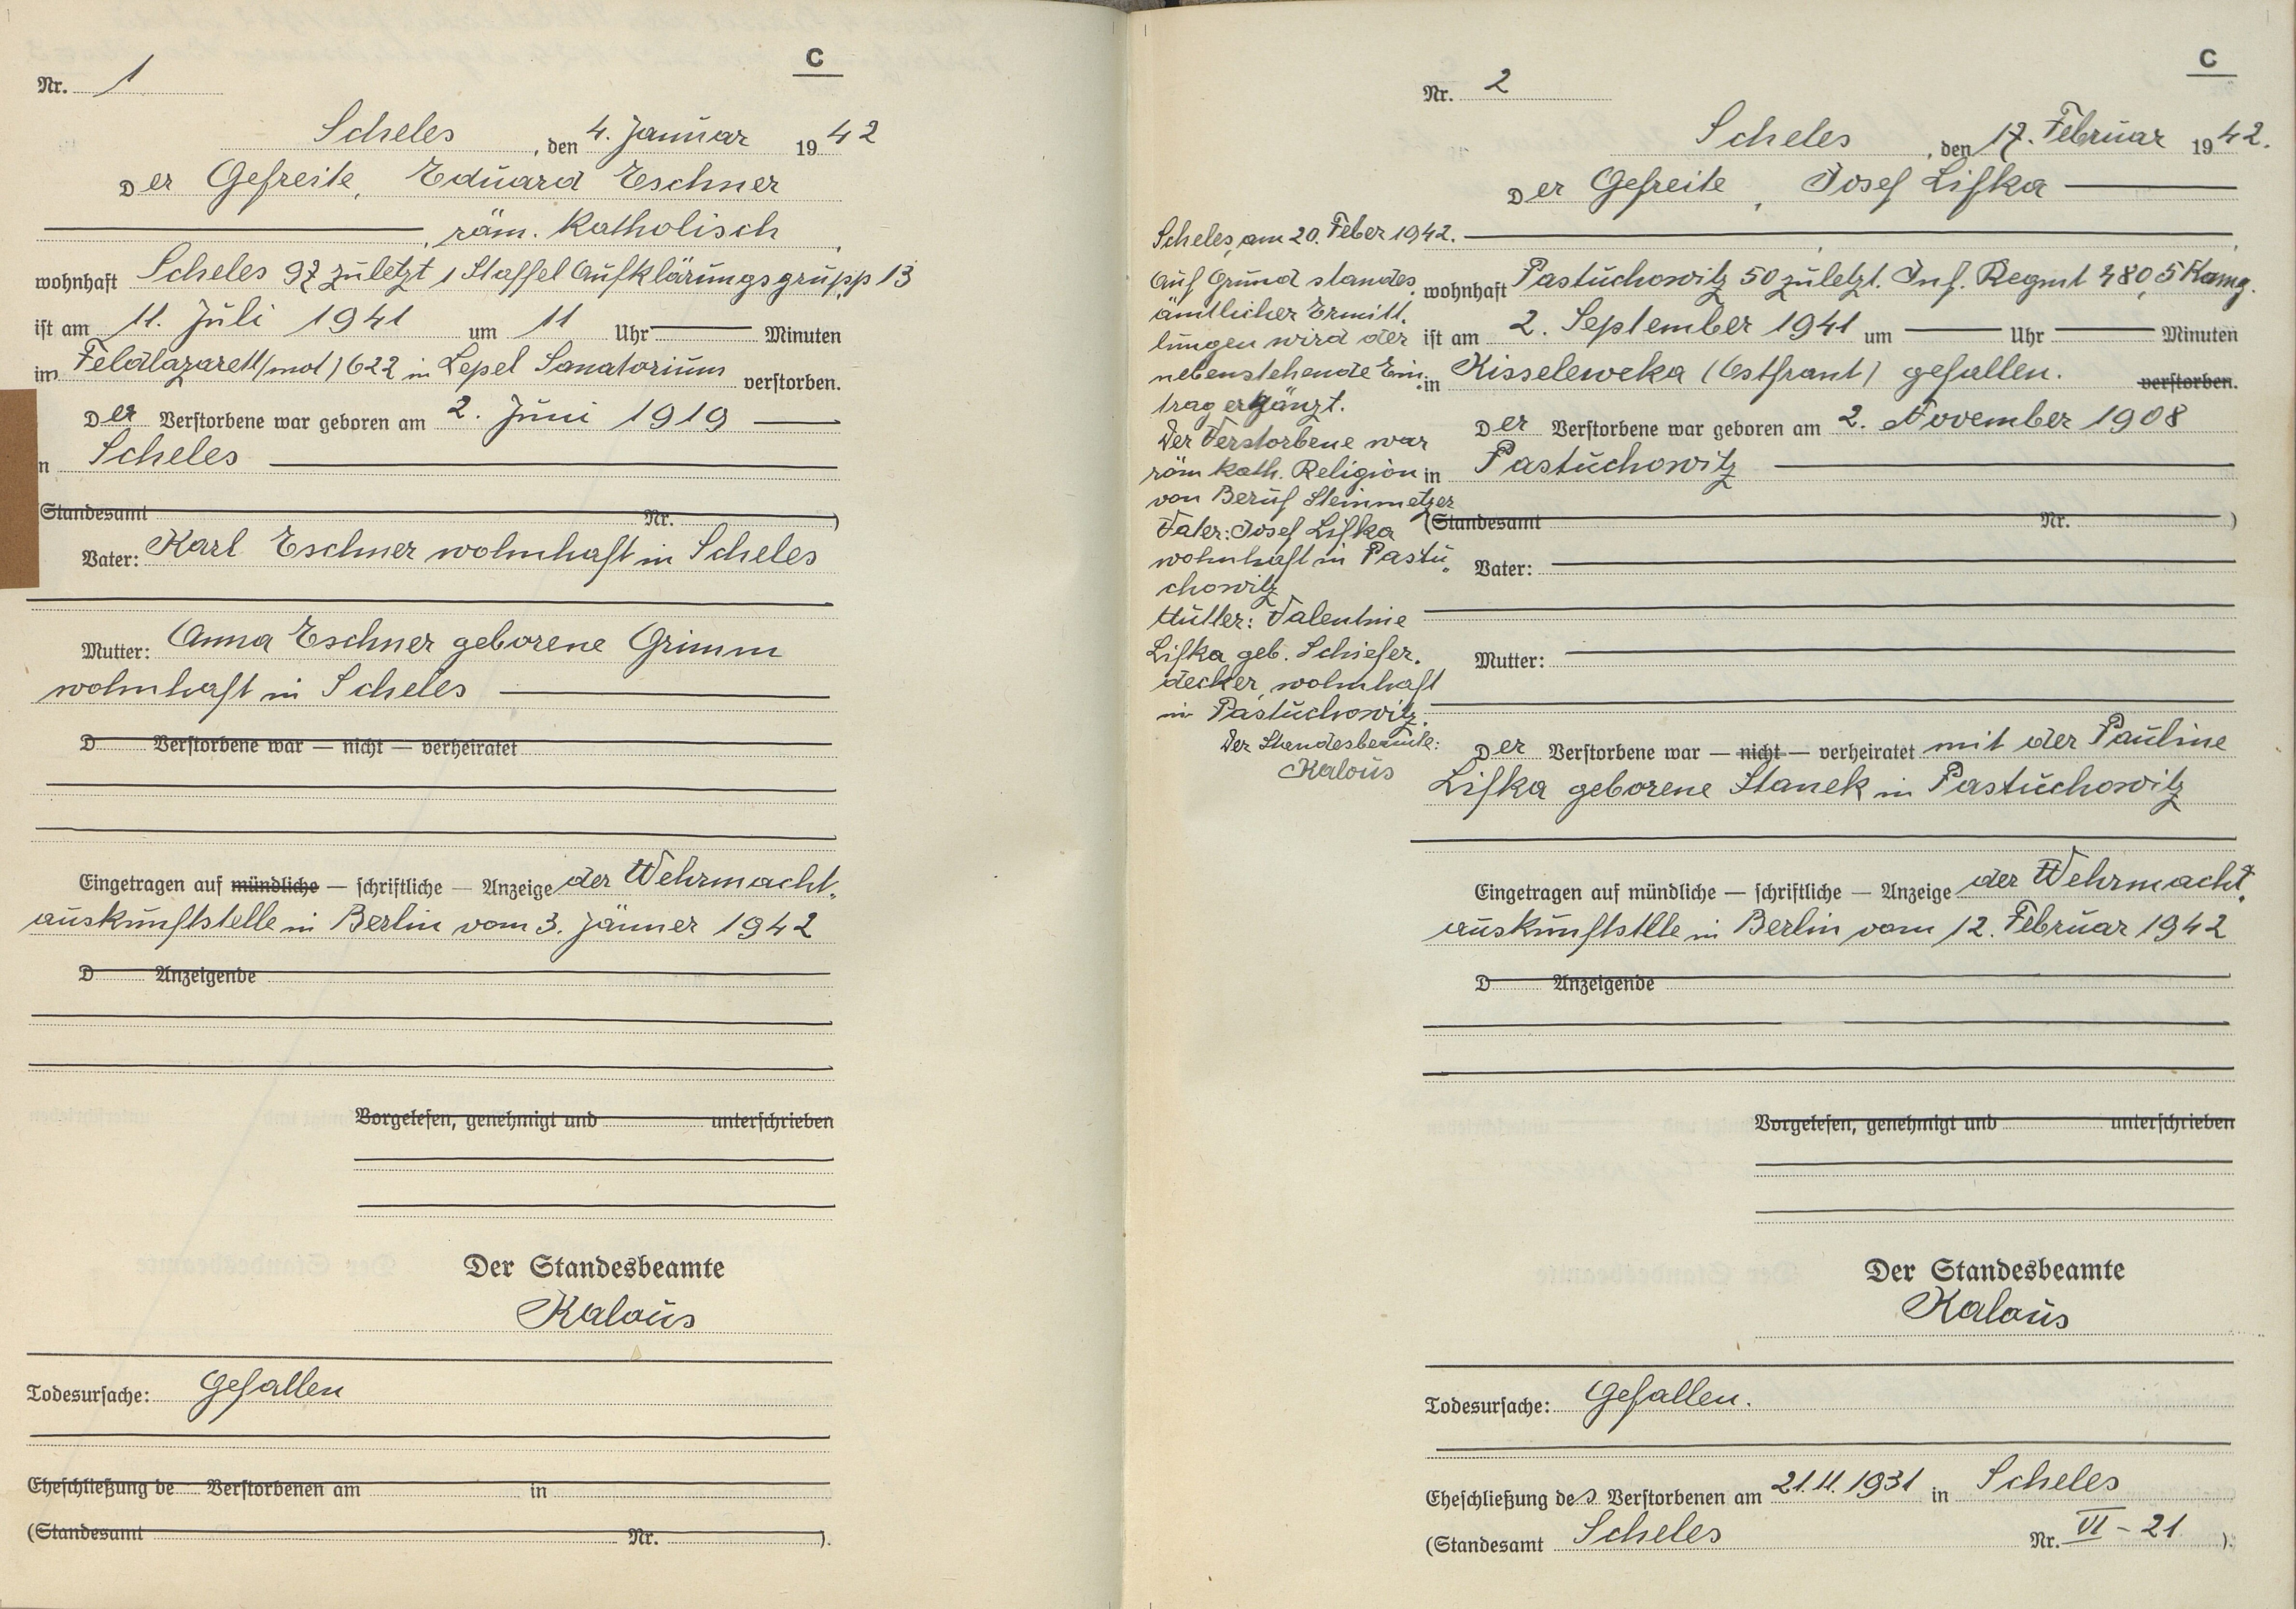 C
Nr. 1
Scheles, den 4. Januar 1942
Der Gefreite, Eduard Eschner
, röm. Katholisch,
wohnhaft Scheles 97 zuletzt 1 Staffel Aufklärungsgrupp 13
ist am 11. Juli 1941 um 11 Uhr Minuten
im Feldlazarett (mot) 622 in Lepel Sanatorium verstorben.
Der Verstorbene war geboren am 2. Juni 1919
n Scheles
(Standesamt Nr. )
Vater: Karl Eschner wohnhaft in Scheles
Mutter: Anna Eschner geborene Grimm
wohnhaft in Scheles
D Verstorbene war — nicht — verheiratet
Eingetragen auf mündliche — schriftliche — Anzeige der Wehrmacht-
auskunftstelle in Berlin vom 3. Jänner 1942
D Anzeigende
Vorgelesen, genehmigt und unterschrieben
Der Standesbeamte
Kalous
Todesursache: Gefallen
Eheschließung de Verstorbenen am in
(Standesamt Nr. ).
C
Nr. 2
Scheles, den 17. Februar 1942.
Der Gefreite, Josef Lifka
wohnhaft Pastuchowitz 50 zuletzt. Inf. Regmt 480, 5 Komg.
ist am 2. September 1941 um Uhr Minuten
in Kisseleweka (Ostfront) gefallen. verstorben.
Der Verstorbene war geboren am 2. November 1908
in Pastuchowitz
(Standesamt Nr. )
Vater:
Mutter:
Der Verstorbene war — nicht — verheiratet mit der Pauline
Lifka geborene Stanek in Pastuchowitz
Eingetragen auf mündliche — schriftliche — Anzeige der Wehrmacht-
auskunftstlle in Berlin vom 12. Februar 1942
D Anzeigende
Vorgelesen, genehmigt und unterschrieben
Der Standesbeamte
Kalous
Todesursache: Gefallen.
Eheschließung des Verstorbenen am 21.11.1931 in Scheles
(Standesamt Scheles Nr. VI - 21 ).
Scheles, am 20. Feber 1942.
Auf Grund standes-
amtlicher Ermitt-
lungen wird der
nebenstehende Ein-
trag ergänzt.
Der Verstorbene war
röm kath. Religion
von Beruf Steinmetzer
Vater: Josef Lifka
wohnhaft in Pastu-
chowitz
Mutter: Valentine
Lifka geb. Schiefer-
decker, wohnhaft
in Pastuchowitz.
Der Standesbeamte:
Kalous